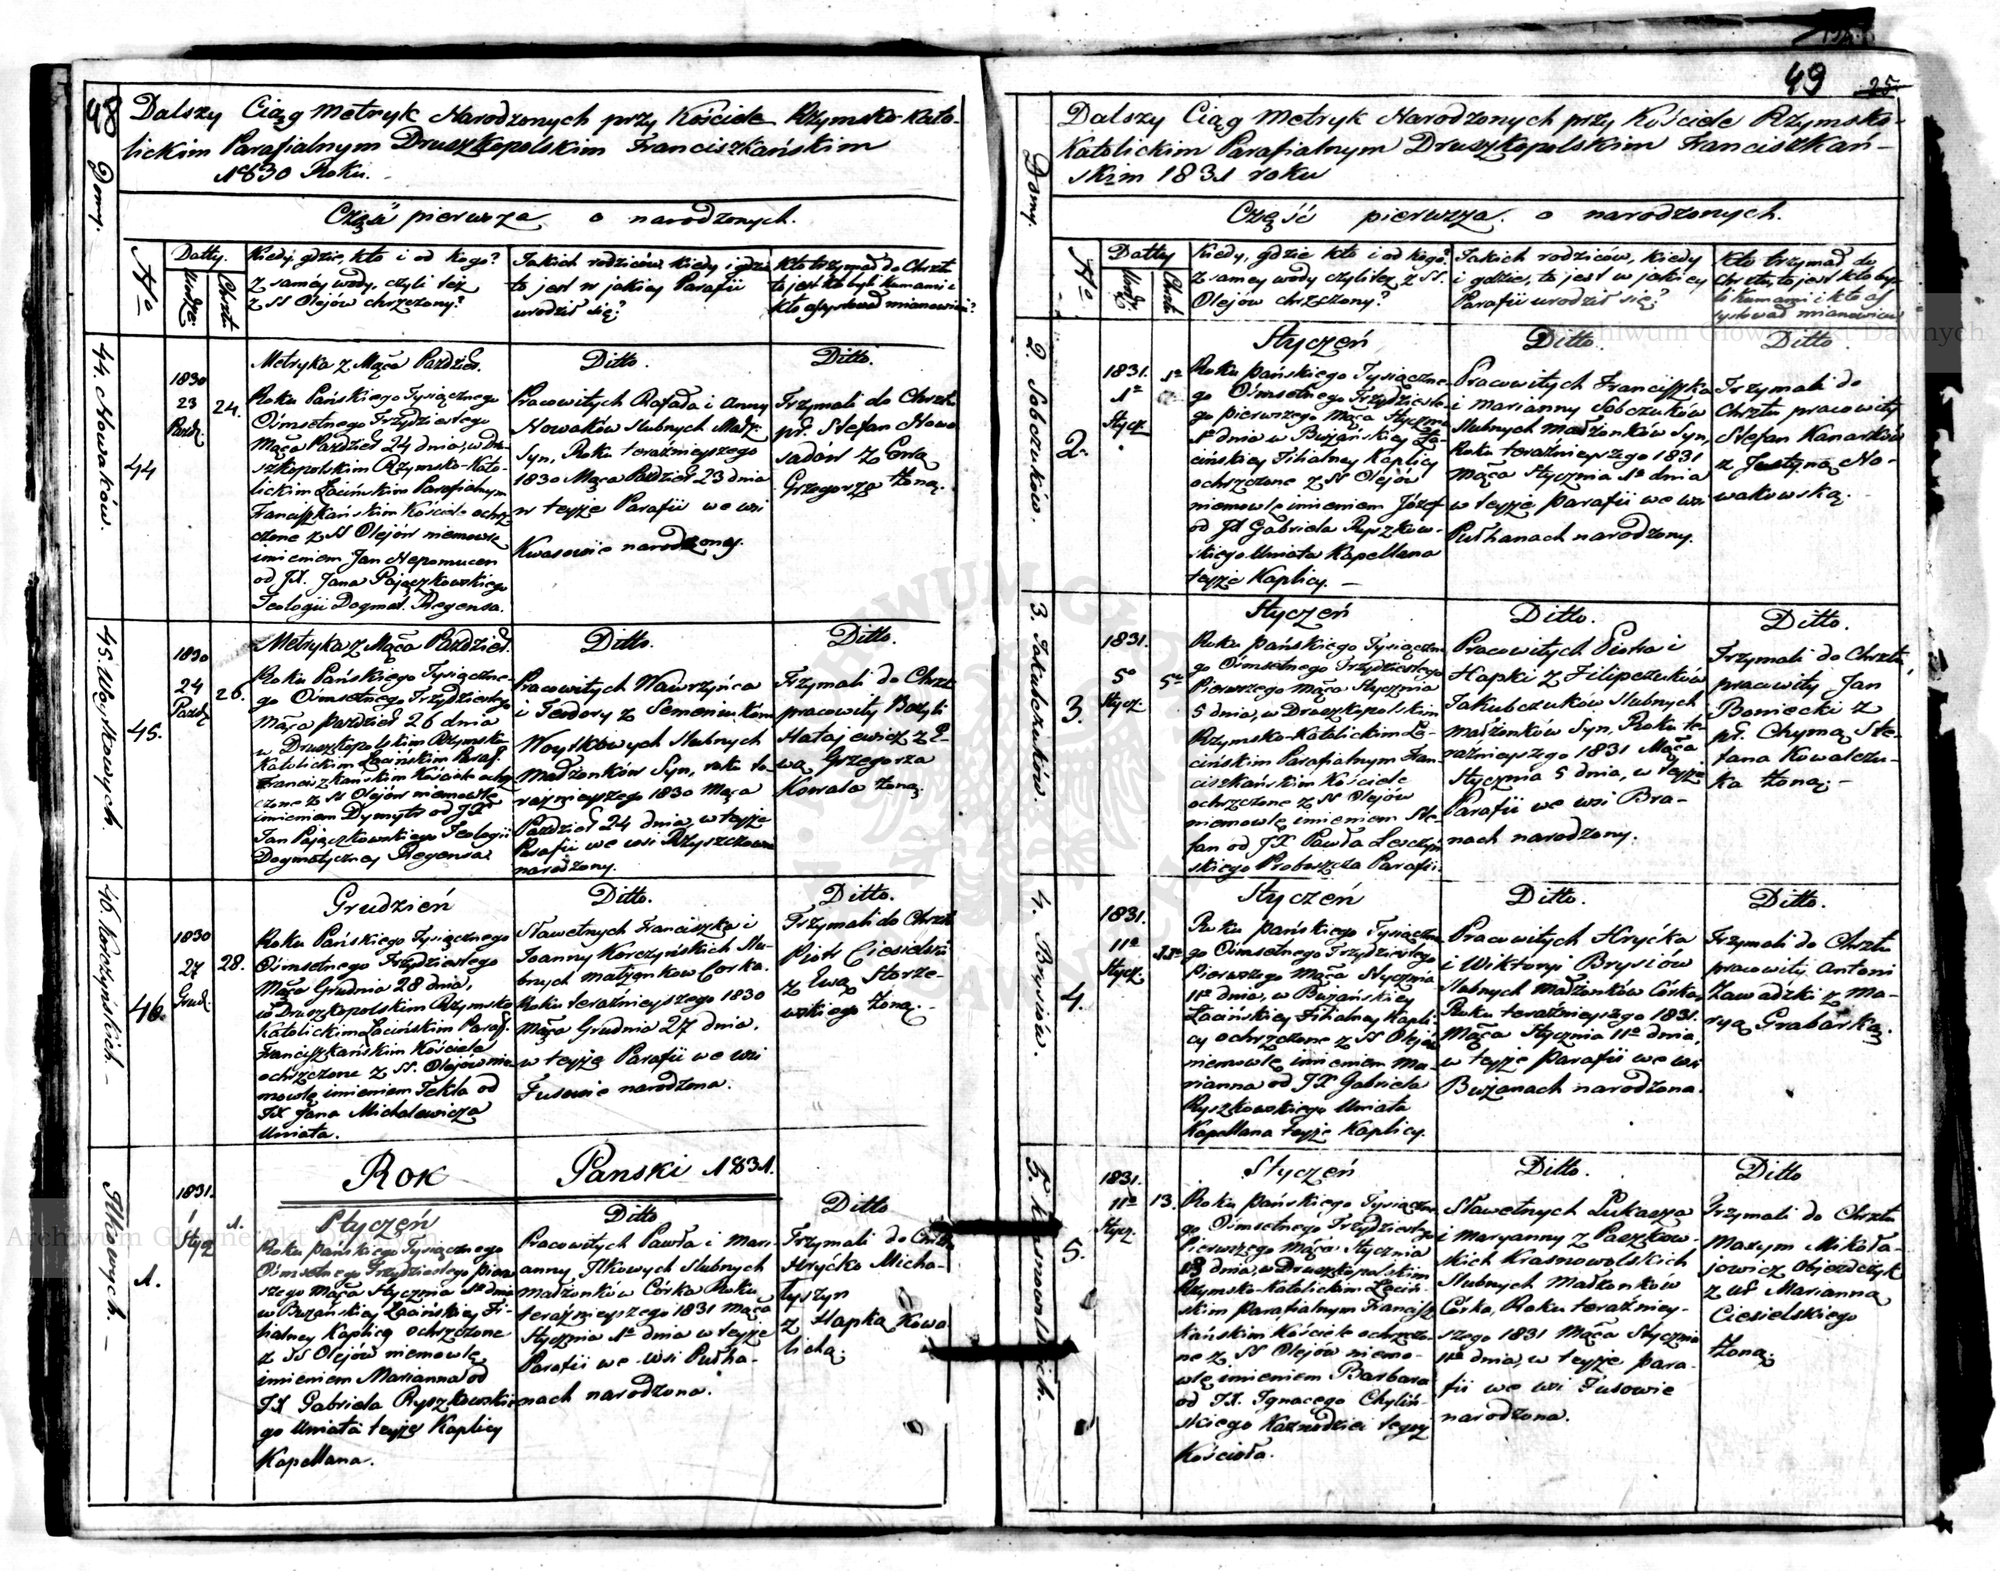 48
Domy.
Dalszy Ciąg Metryk Narodzonych przy Kościele Rzymsko-Kato-
lickim Parafialnym Druszkopolskim Franciszkańskim
1830 Roku.
Część pierwsza o narodzonych.
No
Datty.
Urodze:
Chrztu
Kiedy, gdzie, kto i od kogo?
z saméy wody, czyli też
z SS Olejów chrzczony?
Jakich rodziców, kiedy i gdzie
to jest w jakiey Parafii
urodził się?
Kto trzymał do Chrztu
to jest kto byli kumami i
kto assystował mianowicie?
44. Nowaków.
44
1830
23
Paźdź
24.
Metryka z Mąca Paździeł.
Roku Pańskiego Tysiącznego
Ośmsetnego Trzydziestego
Mąca Paździeł 24 dnia, w Dru-
szkopolskim Rzymsko-Kato-
lickim Łacińskim Parafialnym
Franciszkańskim Kościele ochrz-
czone z SS Olejów niemowlę
imieniem Jan Nepomucen
od JX. Jana Pajączkowskiego
Teologii Dogmat. Regensa.
Ditto.
Pracowitych Rafała i Anny
Nowaków slubnych Małż:
Syn, Roku teraźnieyszego
1830 Mąca Paździeł 23 dnia
w teyże Parafii we wsi
Kwasowie narodzony.
Ditto.
Trzymali do Chrztu
pr. Stefan Nowo
sadów z Ewą
Grzegorza żoną.
45. Woytkowych.
45.
1830
24
Paźdź
26.
Metryka z Mąca Paździeł.
Roku Pańskiego Tysiączne-
go Ośmsetnego Trzydziestego
Mąca paździeł 26 dnia
w Druszkopolskim Rzymsko-
Katolickim Łacińskim Paraf.
Franciszkańskim Kościele ochrz
czone z SS Olejów niemowlę
imieniem Dymytr od JX
Jan Pajączkowskiego Teologii
Dogmatyczney Regensa.
Ditto.
Pracowitych Wawrzyńca
i Teodory z Semeniuków
Woytkowych slubnych
Małżonków Syn, roku te-
raźnieyszego 1830 Mąca
Paździeł 24 dnia, w teyże
Parafii we wsi
narodzony.
Ditto.
Trzymali do Chrzt
pracowity Bazyli
Hatajewicz z E-
wą Grzegorza
Kowala żoną.
46. Korczyńskich.-
46.
1830
27
Grud.
28.
Grudzień
Roku Pańskiego Tysiącznego
Ośmsetnego Trzydziestego
Mąca Grudnia 28 dnia,
w Druszkopolskim Rzymsko
Katolickim Łacińskim Paraf.
Franciszkańskim Kościele
ochrzczone z SS. Olejów nie-
mowlę imieniem Tekla od
JX Jana Michalewicza
Uniata.
Ditto.
Sławetnych Franciszka i
Joanny Korczyńskich slu-
bnych małżonków Córka.
Roku teraźnieyszego 1830
Mąca Grudnia 27 dnia.
w teyże Parafii we wsi
Fusowie narodzona.
Ditto.
Trzymali do Chrztu
Piotr Ciesielski
z Ewą Storze-
wskiego żoną.-
Rok Panski 1831.
Ilkowych.-
1.
1831.
1
Stycz
1.
Styczeń
Roku pańskiego Tysiącznego
Ośmsetnego Trzydziestego pierw
szego Mąca Stycznia 1o dnia
w Bużańskiey Łacińskiey Fi-
lialney Kaplicy ochrzczone
z SS Olejów niemowlę
imieniem Marianna od
JX Gabriela Ryszkowskie
go Uniata teyże Kaplicy
Kapellana.
Ditto
Pracowitych Pawła i Mari-
anny Ilkowych slubnych
małżonków Córka Roku
teraźnieyszego 1831 Mąca
Stycznia 1o dnia w teyże
Parafii we wsi Pułha-
nach narodzona.
Ditto
Trzymali do Chrztu
Hryćko Micha-
łyszyn
z Hapką Kowa
lichą.
49
25
Domy.
Dalszy Ciąg Metryk Narodzonych przy Kościele Rzymsko-
Katolickim Parafialnym Druszkopolskim Franciszkań-
skim 1831 roku
Część pierwsza. o narodzonych.
No
Datty
Urodz:
Chrztu
Kiedy, gdzie kto i od kogo?
z samey wody czyli też z SS.
Olejów chrzczony?
Jakich rodziców, kiedy
i gdzie, to jest w jakiey
Parafii urodził się?
Kto trzymał do
Chrztu, to jest kto by-
li kumami i kto as
systował mianowicie
2. Sobczuków.
2.
1831.
1o
Stycz:
1o
Styczeń
Roku pańskiego Tysiączne-
go Ośmsetnego Trzydzieste-
go pierwszego Mąca Stycznia
1o dnia w Bużańskiey Ła-
cińskiey Filialney Kaplicy
ochrzczone z SS Olejów
niemowlę imieniem Józef
od JX Gabriela Ryszkow-
skiego Uniata Kapellana
teyże Kaplicy.-
Ditto.
Pracowitych Franciszka
i Marianny Sobczuków
slubnych małżonków Syn,
Roku teraźnieyszego 1831
Mąca Stycznia 1o dnia
w teyże parafii we wsi
Pułhanach narodzony.
Ditto.
Trzymali do
Chrztu pracowity
Stefan Kanarków
z Justyną No-
wakowską.
3. Jakubczuków.
3.
1831.
5o
Stycz:
5o
Styczeń
Roku pańskiego Tysiączne
go Ośmsetnego Trzydziestego
Pierwszego Mąca Stycznia
5 dnia, w Druszkopolskim
Rzymsko-Katolickim Ła-
cińskim Parafialnym Fran-
ciszkańskim Kościele
ochrzczone z SS Olejów
niemowlę imieniem Ste-
fan od JX Pawła Leszczyń-
skiego Proboszcza Parafii.
Ditto.
Pracowitych Piotra i
Hapki z Filipczuków
Jakubczuków slubnych
małżonków Syn, Roku te-
raźnieyszego 1831 Mąca
Stycznia 5 dnia, w teyże
Parafii we wsi Bra-
nach narodzony.
Ditto.
Trzymali do Chrztu,
pracowity Jan
Boniecki z
pr. Chymą Ste-
fana Kowalczu-
ka żoną.-
4. Brysiów.
4.
1831.
11o
Stycz:
11o
Styczeń
Roku pańskiego Tysiączne
go Ośmsetnego Trzydziestego
Pierwszego Mąca Stycznia
11o dnia, w Bużańskiey
Łacińskiey Filialney Kapli
cy ochrzczone z SS Olejów
niemowlę imieniem Ma-
rianna od JX Gabriela
Ryszkowskiego Uniata
Kapellana teyże Kaplicy.
Ditto.
Pracowitych Hryćka
i Wiktoryi Brysiów
slubnych Małżonków Córka,
Roku teraźnieyszego 1831.
Mąca Stycznia 11o dnia,
w teyże parafii we wsi
Bużanach narodzona.
Ditto.
Trzymali do Chrztu
pracowity Antoni
Zawadzki z Ma-
ryą Grabarską.
5. Krasnowolskich.-
5.
1831.
11o
Stycz:
13.
Styczeń
Roku pańskiego Tysiączne
go Ośmsetnego Trzydziestego
Pierwszego Mąca Stycznia
13 dnia, w Druszkopolskim
Rzymsko-Katolickim Łaciń-
skim parafialnym Francisz
kańskim Kościele ochrzczo-
ne z SS Olejów niemo-
wlę imieniem Barbara
od JX. Ignacego Chyliń-
skiego Kaznodziei tegoż
Kościoła.
Ditto.
Sławetnych Łukasza
i Maryanny z Paszkow-
skich Krasnowolskich
slubnych Małżonków
Córka, Roku teraźniey-
szego 1831 Mąca Stycznia
11o dnia, w teyże para-
fii we wsi Fusowie
narodzona.
Ditto
Trzymali do Chrztu
Maxym Mikoła-
jowicz Objezdczyk
z W Marianną
Ciesielskiego
żoną.
Archiwum Główne Akt Dawnych
Archiwum Główne Akt Dawnych